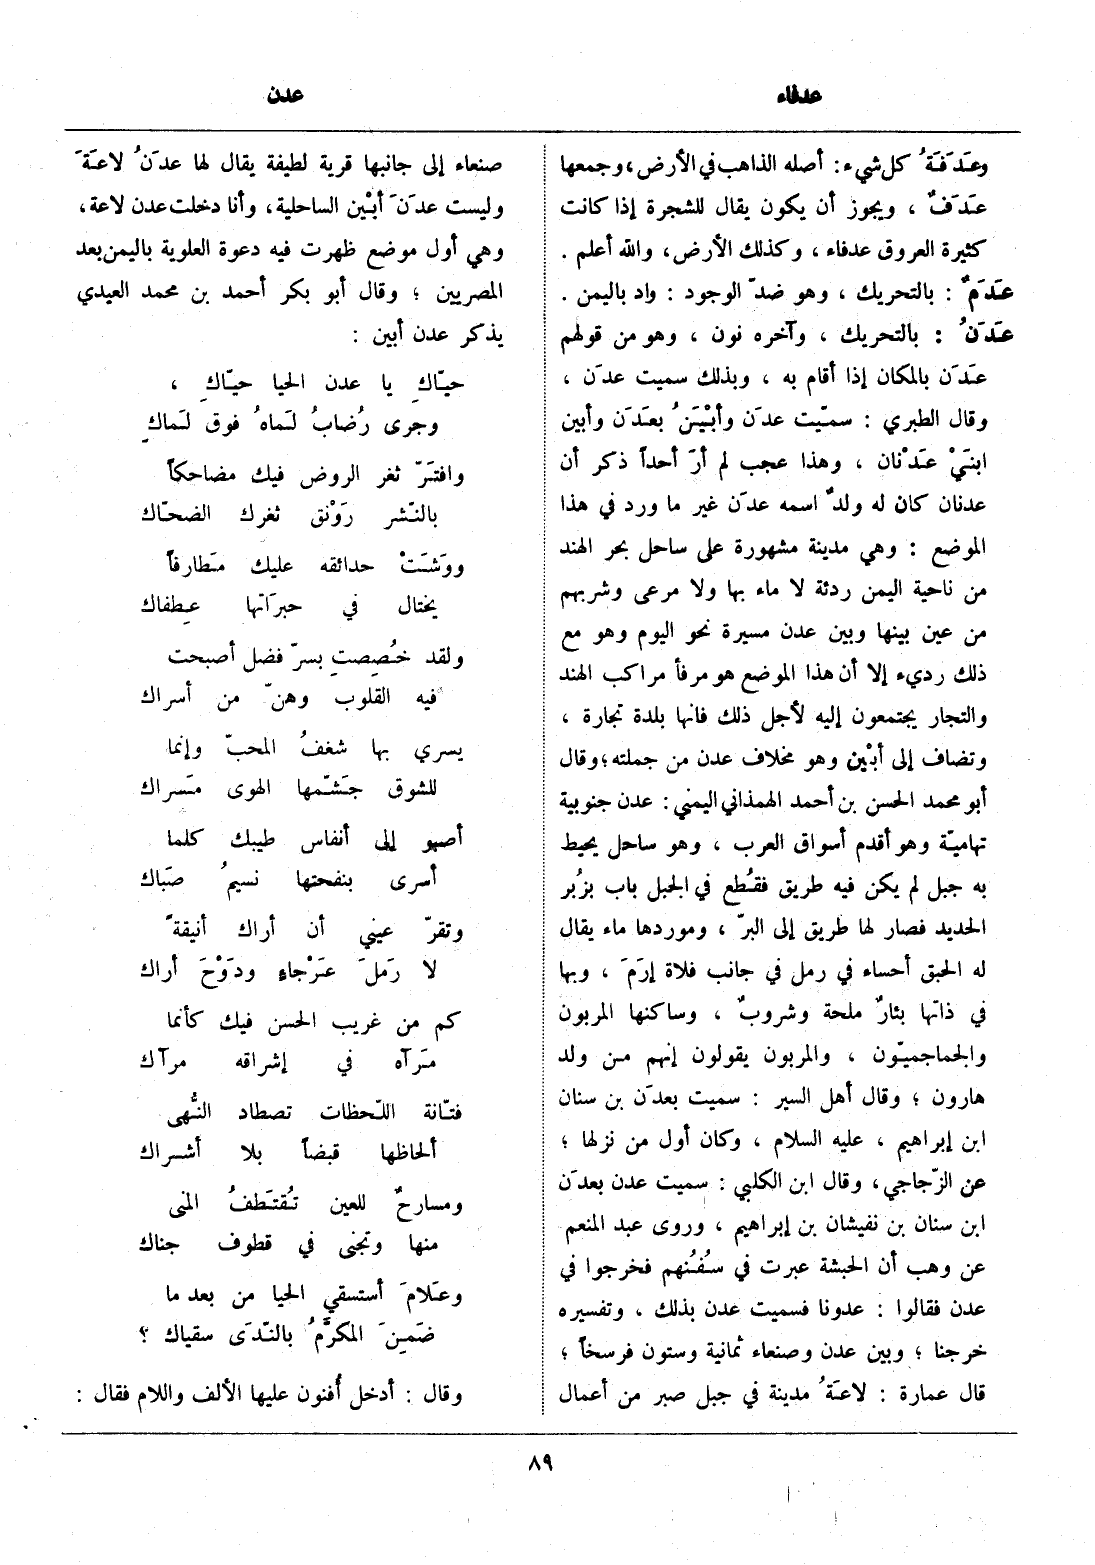 عدفاء
عدن
وعَدَفَةُ كل شيء: أصله الذاهب في الأرض، وجمعها
عَدَفٌ، ويجوز أن يكون يقال للشجرة إذا كانت
كثيرة العروق عدفاء، وكذلك الأرض، والله أعلم.
عَدَمٌ: بالتحريك، وهو ضدّ الوجود: واد باليمن.
عَدَنُ: بالتحريك، وآخره نون، وهو من قولهم
عَدَن بالمكان إذا أقام به، وبذلك سميت عدَن،
وقال الطبري: سمّيت عدَن وأبْيَنُ بعَدَن وأبين
ابنَيْ عَدْنان، وهذا عجب لم أرَ أحداً ذكر أن
عدنان كان له ولدٌ اسمه عدَن غير ما ورد في هذا
الموضع: وهي مدينة مشهورة على ساحل بحر الهند
من ناحية اليمن ردئة لا ماء بها ولا مرعى وشربهم
من عين بينها وبين عدن مسيرة نحو اليوم وهو مع
ذلك رديء إلا أن هذا الموضع هو مرفأ مراكب الهند
والتجار يجتمعون إليه لأجل ذلك فانها بلدة تجارة،
وتضاف إلى أبْين وهو مخلاف عدن من جملته؛ وقال
أبو محمد الحسن بن أحمد الهمذاني اليمني: عدن جنوبية
تهاميّة وهو أقدم أسواق العرب، وهو ساحل يحيط
به جبل لم يكن فيه طريق فقُطع في الجبل باب بزُبر
الحديد فصار لها طريق إلى البرّ، وموردها ماء يقال
له الحبق أحساء في رمل في جانب فلاة إرَمَ، وبها
في ذاتها بئارٌ ملحة وشروبٌ، وساكنها المربون
والحماجميّون، والمربون يقولون إنهم من ولد
هارون؛ وقال أهل السير: سميت بعدَن بن سنان
ابن إبراهيم، عليه السلام، وكان أول من نزلها؛
عن الزّجاجي، وقال ابن الكلبي: سميت عدن بعدَن
ابن سنان بن نفيشان بن إبراهيم، وروى عبد المنعم
عن وهب أن الحبشة عبرت في سُفُنهم فخرجوا في
عدن فقالوا: عدونا فسميت عدن بذلك، وتفسيره
خرجنا؛ وبين عدن وصنعاء ثمانية وستون فرسخاً؛
قال عمارة: لاعَةُ مدينة في جبل صبر من أعمال
صنعاء إلى جانبها قرية لطيفة يقال لها عدَنُ لاعَةَ
وليست عدَنَ أبْيَن الساحلية، وأنا دخلت عدن لاعة،
وهي أول موضع ظهرت فيه دعوة العلوية باليمن بعد
المصريين؛ وقال أبو بكر أحمد بن محمد العيدي
يذكر عدن أبين:
حيّاكِ يا عدن الحيا حيّاكِ،
وجرى رُضابُ لَماهُ فوق لَماكِ
وافتَرّ ثغر الروض فيك مضاحكاً
بالنّشر رَوْنق ثغرك الضحّاك
ووَشَتْ حدائقه عليك مَطارفاً
يختال في حبرَاتها عِطفاك
ولقد خُصِصتِ بسرّ فضل أصبحت
فيه القلوب وهنّ من أسراك
يسري بها شغفُ المحبّ وإنما
للشوق جَشّمها الهوى مَسراك
أصبو إلى أنفاس طيبك كلما
أسرى بنفحتها نسيمُ صَباك
وتقرّ عيني أن أراك أنيقةً
لا رَملَ عَرْجاءٍ ودَوْحَ أراك
كم من غريب الحسن فيك كأنما
مَرآه في إشراقه مرآك
فتّانة اللّحظات تصطاد النُّهى
ألحاظها قبضاً بلا أشراك
ومسارحٌ للعين تُقتَطفُ المنى
منها وتجنى في قطوف جناك
وعَلامَ أستسقي الحيا من بعد ما
ضَمِنَ المكرَّمُ بالنّدَى سقياك؟
وقال: أدخل أُفنون عليها الألف واللام فقال:
٨٩